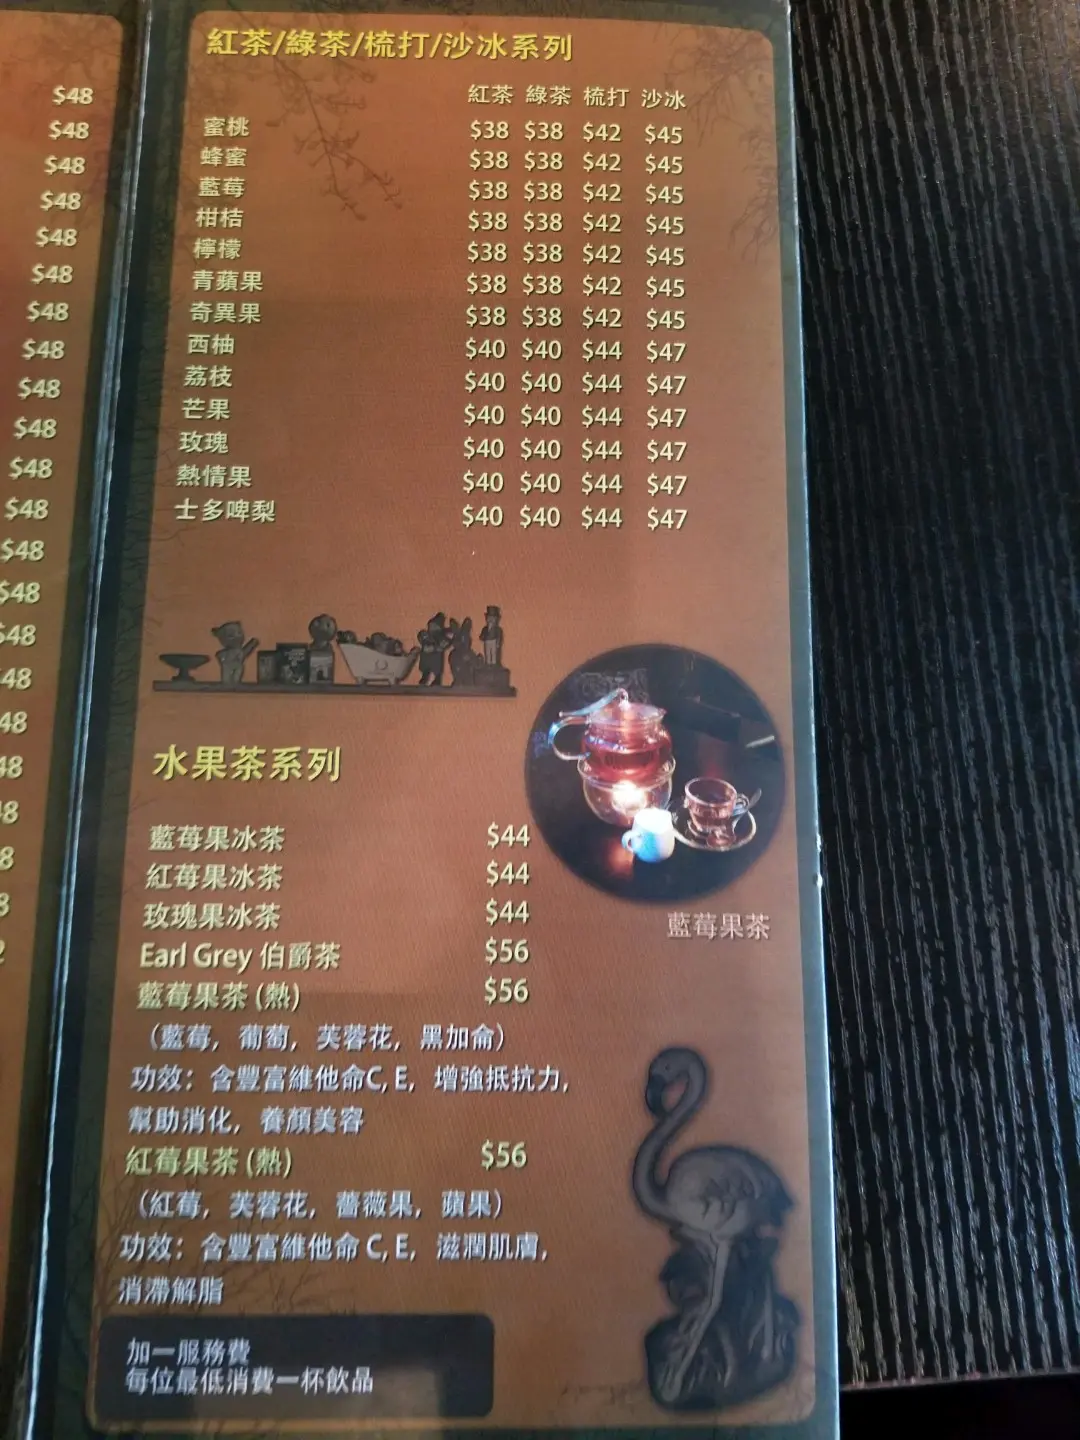 $48
$48
$48
$48
$48
$48
$48
$48
$48
$48
$48
$48
$48
$48
$48
48
48
48
48
8
8
2
紅茶/綠茶/梳打/沙冰系列
紅茶 綠茶 梳打 沙冰
蜜桃 $38 $38 $42 $45
蜂蜜 $38 $38 $42 $45
藍莓 $38 $38 $42 $45
柑桔 $38 $38 $42 $45
檸檬 $38 $38 $42 $45
青蘋果 $38 $38 $42 $45
奇異果 $38 $38 $42 $45
西柚 $40 $40 $44 $47
荔枝 $40 $40 $44 $47
芒果 $40 $40 $44 $47
玫瑰 $40 $40 $44 $47
熱情果 $40 $40 $44 $47
士多啤梨 $40 $40 $44 $47
水果茶系列
藍莓果冰茶 $44
紅莓果冰茶 $44
玫瑰果冰茶 $44
Earl Grey 伯爵茶 $56
藍莓果茶 (熱) $56
（藍莓, 葡萄, 芙蓉花, 黑加侖）
功效：含豐富維他命C, E, 增強抵抗力,
幫助消化, 養顏美容
紅莓果茶 (熱) $56
（紅莓, 芙蓉花, 薔薇果, 蘋果）
功效：含豐富維他命 C, E, 滋潤肌膚,
消滯解脂
藍莓果茶
加一服務費
每位最低消費一杯飲品